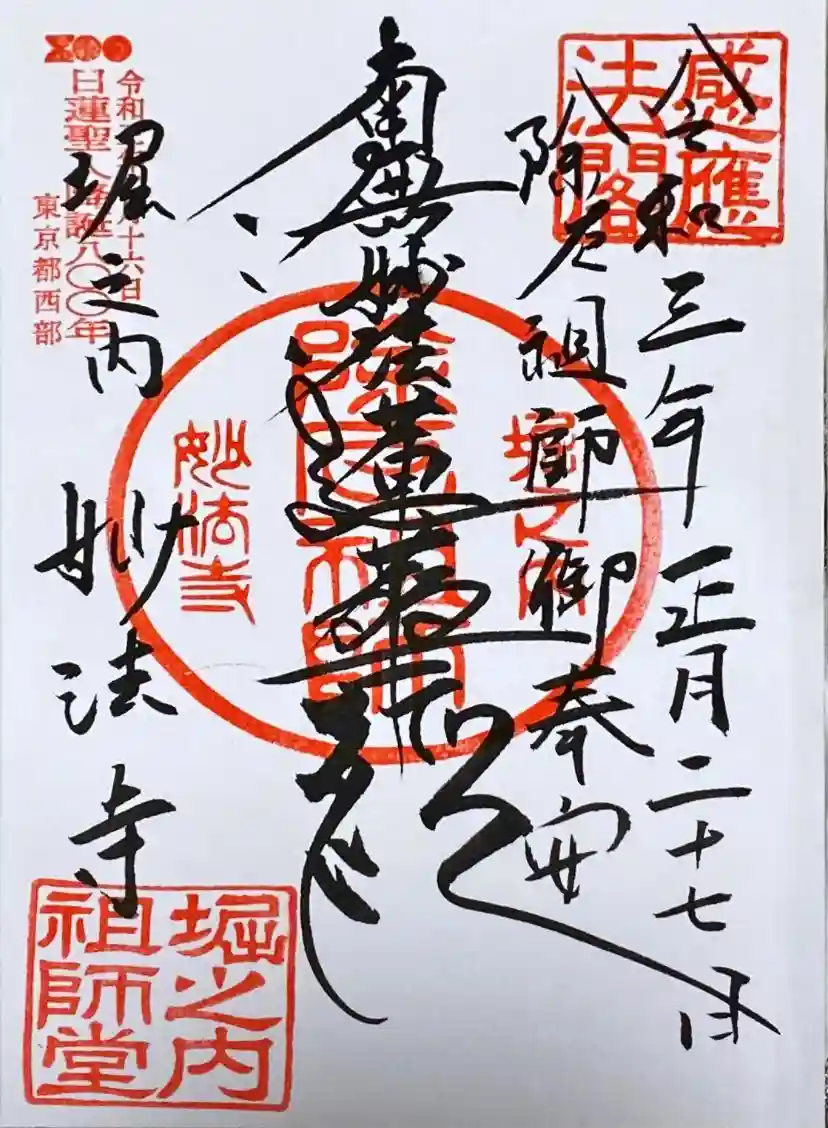 感應
法閣
令和三年正月二十七日
除厄祖師御奉安
南無妙法蓮華経
堀之内
除厄祖師
妙法寺
堀之内 妙法寺
十六日
日蓮聖人降誕八〇〇年
東京都西部
堀之内
祖師堂